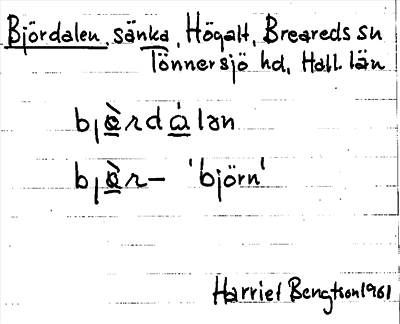 Björdalen, sänka, Högalt, Breareds sn
Tönnersjö hd, Hall. län
bjɵ̀rdálan
bjɵ̀r– 'björn'
Harriet Bengtson 1961